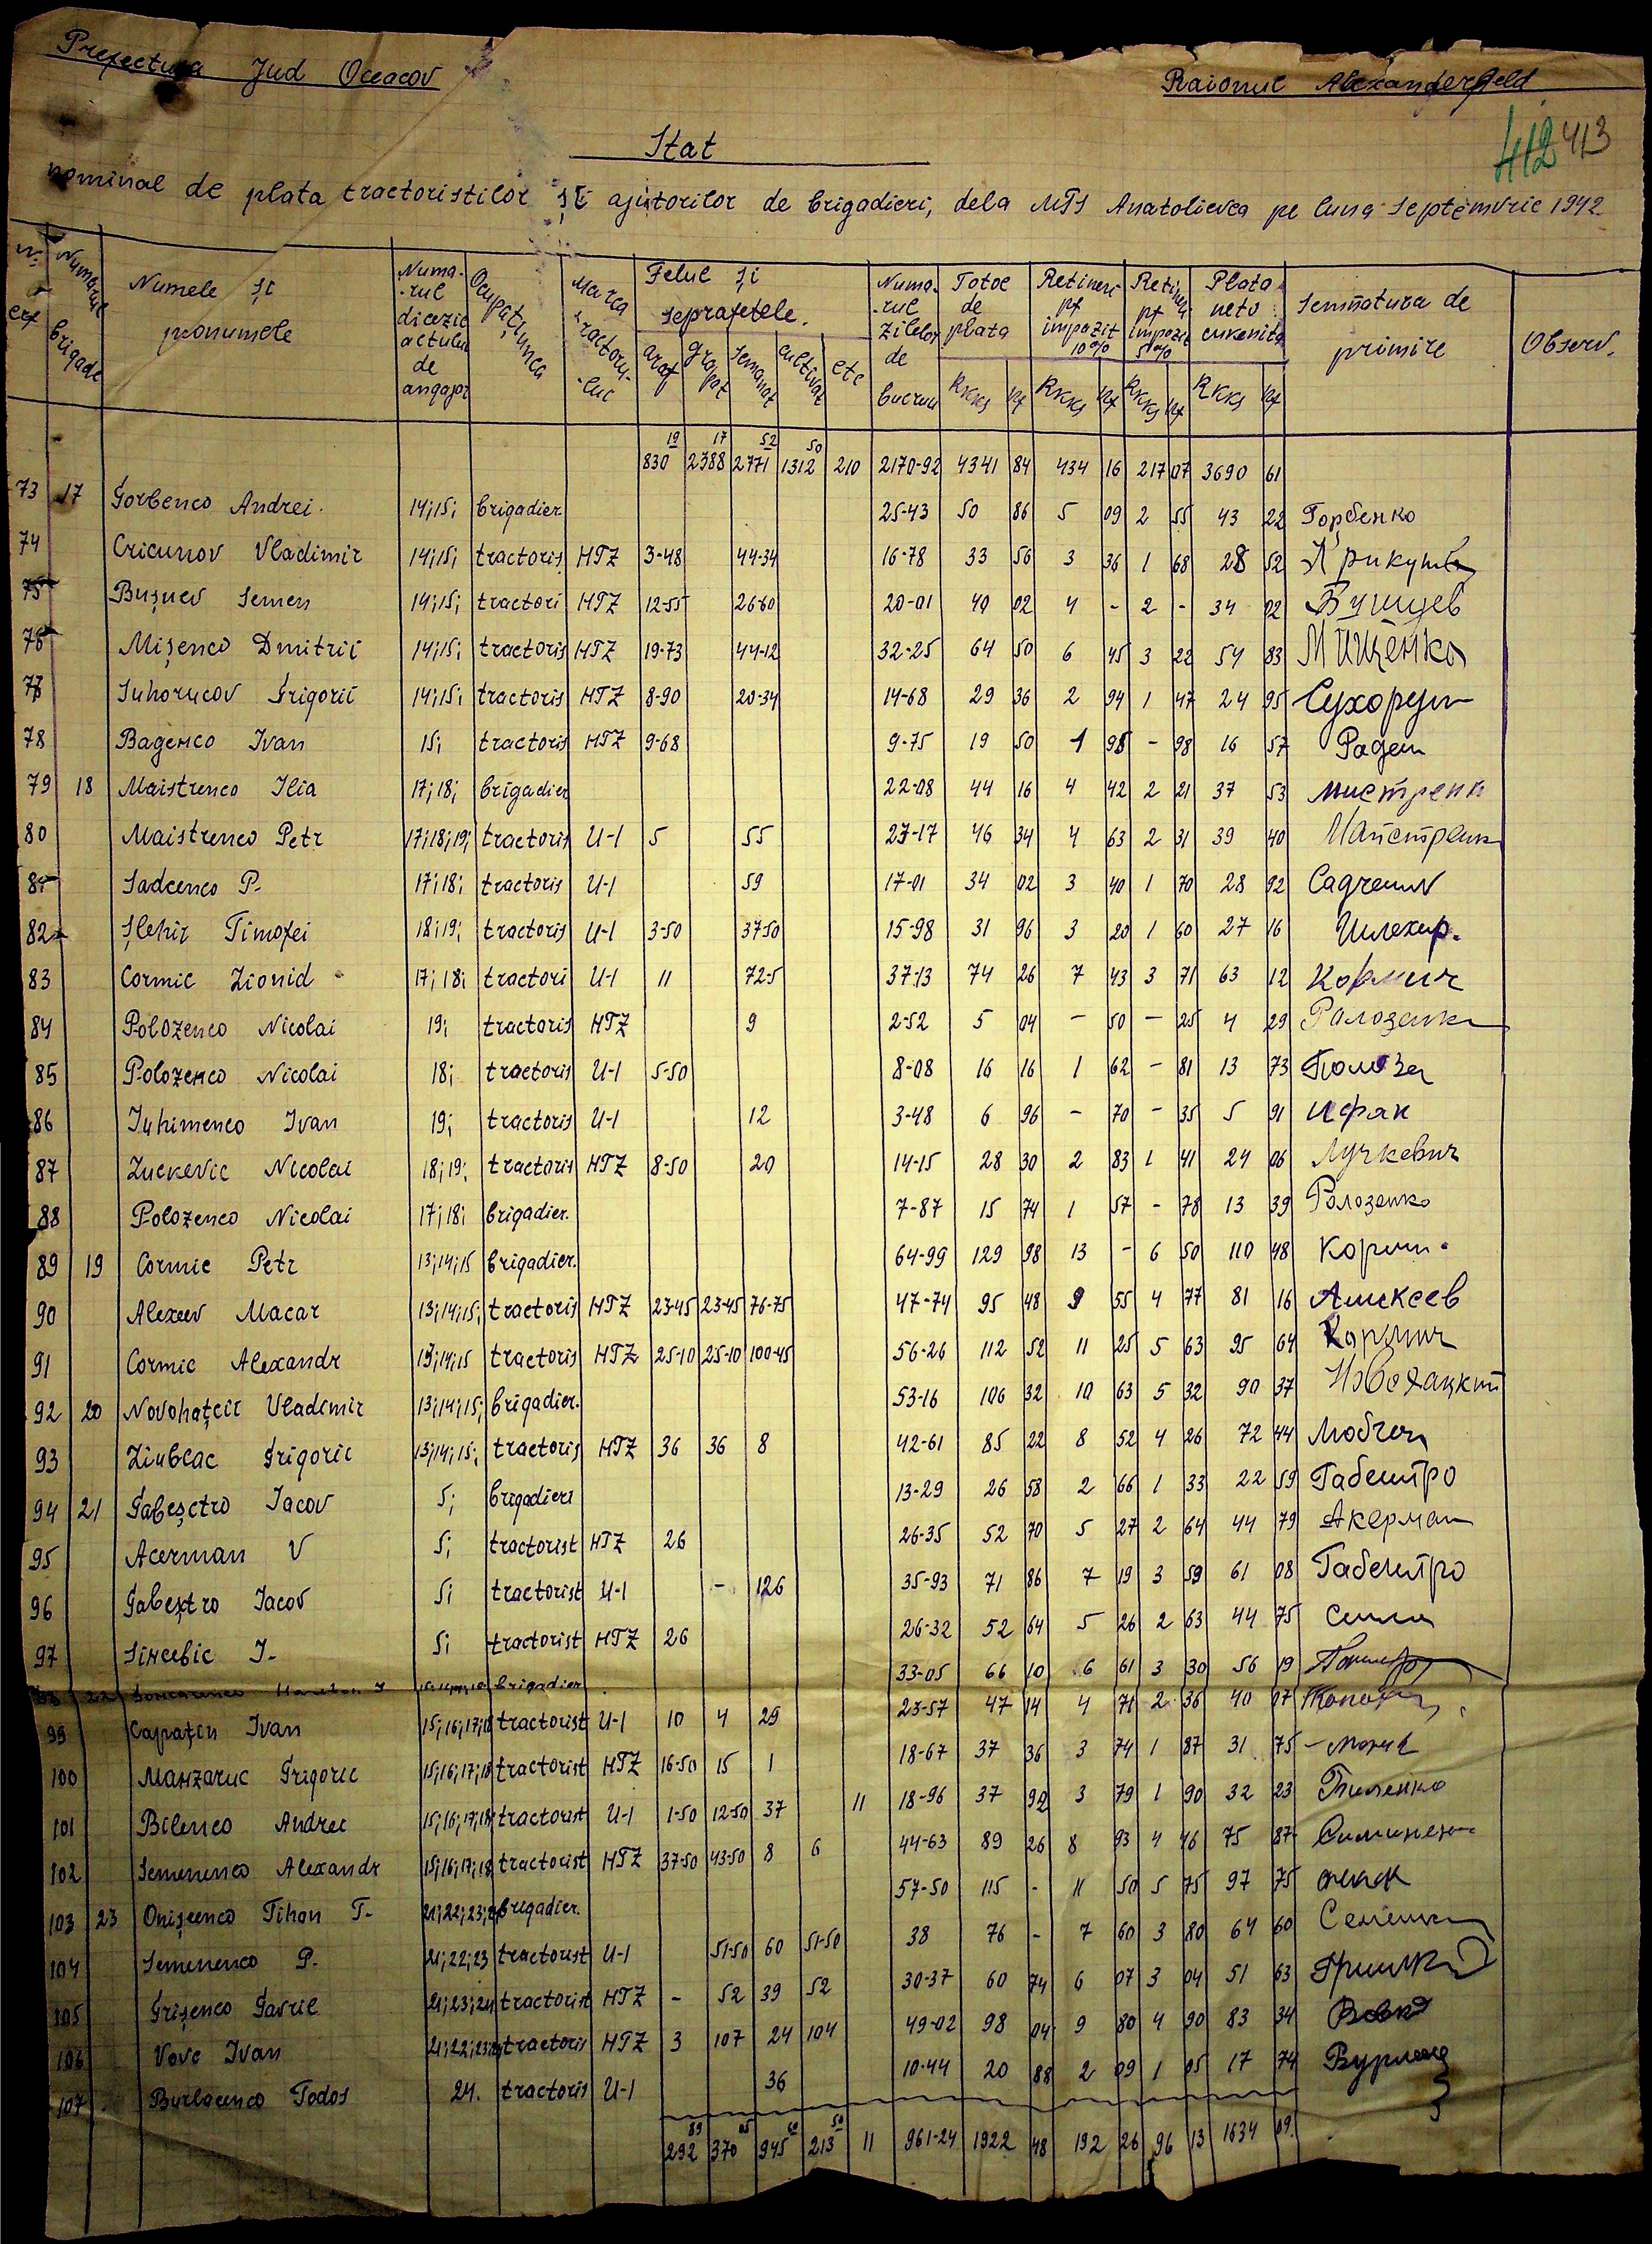 Prefectura Jud Oceacov
Raionul Alexanderfeld
412 413
Stat
nominal de plata tractoristilor și ajutorilor de brigadieri, dela MTS Anatolievca pe luna Septemvrie 1942
Numarul brigade
Numele și pronumele
Numa-rul
de angajar
Ocupațiunea
Marca tractoru-lui
Felul și seprafetele.
arat
grapat
semanat
cultivat
etc
Numa-rul zilelor de lucru
Total de plata
Retineri pt impozit 10%
Retineri pt impozit 5%
Plata neto cuvenita
Semnatura de primire
Observ.
RKKS pf RKKS pf RKKS pf RKKS pf
19 17 52 50
830 2388 2771 1312 210 2170-92 4341 84 434 16 217 07 3690 61
73 17 Gorbenco Andrei. 14;15; brigadier. 25-43 50 86 5 09 2 55 43 22 Горбенко
74 Cricunov Vladimir 14;15; tractoris HTZ 3-48 44-34 16-78 33 56 3 36 1 68 28 52
75 Bușuev Semen 14;15; tractori HTZ 12-55 26-60 20-01 40 02 4 - 2 - 34 02
76 Mișenco Dmitrii 14;15; tractoris HTZ 19-73 44-12 32-25 64 50 6 45 3 22 54 83 Мищенко
77 Suhorucov Grigorii 14;15; tractoris HTZ 8-90 20-34 14-68 29 36 2 94 1 47 24 95
78 Ivan 15; tractoris HTZ 9-68 9-75 19 50 1 95 - 98 16 57
79 18 Maistrenco Ilia 17;18; brigadier 22-08 44 16 4 42 2 21 37 53
80 Maistrenco Petr 17;18;19; tractoris U-1 5 55 23-17 46 34 4 63 2 31 39 40
81 Sadcenco P. 17;18; tractoris U-1 59 17-01 34 02 3 40 1 70 28 92
82 Șlehir Timofei 18;19; tractoris U-1 3-50 37-50 15-98 31 96 3 20 1 60 27 16 Шлехир.
83 Cormic Lionid 17;18; tractori U-1 11 72-5 37-13 74 26 7 43 3 71 63 12 Кормич
84 Polozenco Nicolai 19; tractoris HTZ 9 2-52 5 04 - 50 - 25 4 29
85 Polozenco Nicolai 18; tractoris U-1 5-50 8-08 16 16 1 62 - 81 13 73
86 Iuhimenco Ivan 19; tractoris U-1 12 3-48 6 96 - 70 - 35 5 91
87 Luckevic Nicolai 18;19; tractoris HTZ 8-50 20 14-15 28 30 2 83 1 41 24 06 Лучкевич
88 Polozenco Nicolai 17;18; brigadier. 7-87 15 74 1 57 - 78 13 39 Полозенко
89 19 Cormic Petr 13;14;15 brigadier. 64-99 129 98 13 - 6 50 110 48
90 Alexeev Macar 13;14;15; tractoris HTZ 23-45 23-45 76-75 47-74 95 48 9 55 4 77 81 16 Алексеев
91 Cormic Alexandr 13;14;15 tractoris HTZ 25-10 25-10 100-45 56-26 112 52 11 25 5 63 95 64 Кормич
92 20 Novohațcii Vladimir 13;14;15; brigadier. 53-16 106 32 10 63 5 32 90 37 Новохацкий
93 Grigorie 13;14;15; tractoris HTZ 36 36 8 42-61 85 22 8 52 4 26 72 44
94 21 Gabeșctro Iacov 5; brigadieri 13-29 26 58 2 66 1 33 22 59 Габештро
95 Acerman V 5; tractorist HTZ 26 26-35 52 70 5 27 2 64 44 79 Акерман
96 Gabeștro Iacov 5; tractorist U-1 - 126 35-93 71 86 7 19 3 59 61 08 Габештро
97 I. 5; tractorist HTZ 26 26-32 52 64 5 26 2 63 44 75
98 22 brigadier 33-05 66 10 6 61 3 30 56 19
99 Capațin Ivan 15;16;17;18 tractorist U-1 10 4 29 23-57 47 14 4 71 2 36 40 07
100 Manzaruc Grigorie 15;16;17;18 tractorist HTZ 16-50 15 1 18-67 37 36 3 74 1 87 31 75
101 Bilenco Andrei 15;16;17;18 tractorist U-1 1-50 12-50 37 11 18-96 37 92 3 79 1 90 32 23 Биленко
102 Semenenco Alexandr 15;16;17;18 tractorist HTZ 37-50 43-50 8 6 44-63 89 26 8 93 4 46 75 87
103 23 Onișcenco Tihon T. brigadier. 57-50 115 - 11 50 5 75 97 75
104 Semenenco P. 21;22;23 tractorist U-1 51-50 60 51-50 38 76 - 7 60 3 80 64 60
105 Grișenco Gavril 21;23;24 tractorist HTZ - 52 39 52 30-37 60 74 6 07 3 04 51 63
106 Vovc Ivan tractoris HTZ 3 107 24 104 49-02 98 04 9 80 4 90 83 34 Вовк
107 Burlacenco Todos 24. tractoris U-1 36 10-44 20 88 2 09 1 05 17 74
89 05 60 50
292 370 945 213 11 961-24 1922 48 192 26 96 13 1634 09.